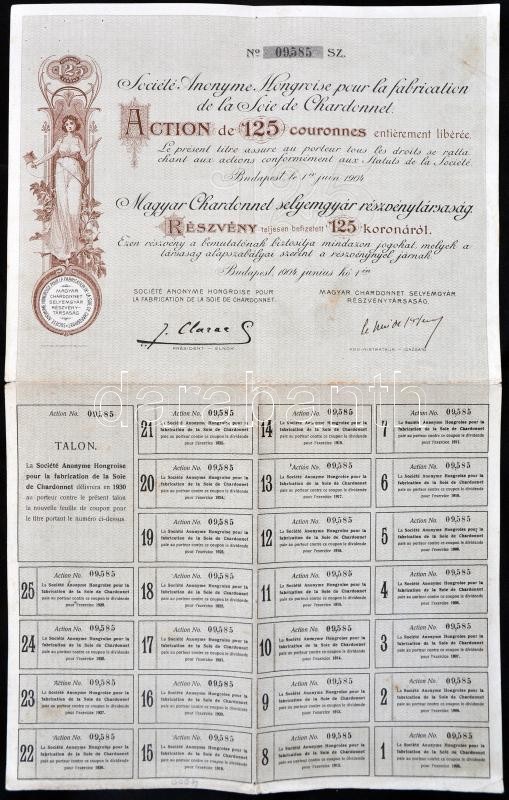 No 09,585 SZ.
125
Société Anonyme Hongroise pour la fabrication
de la Soie de Chardonnet.
ACTION de 125 couronnes entièrement libérée.
Le présent titre assure au porteur tous les droits se ratta-
chant aux actions conformément aux Statuts de la Société.
Budapest, le 1er juin 1904
Magyar Chardonnet selyemgyár részvénytársaság
RÉSZVÉNY teljesen befizetett 125 koronáról.
Ezen részvény a bemutatónak biztosítja mindazon jogokat, melyek a
társaság alapszabályai szerint a részvénynyel járnak.
Budapest, 1904 junius hó 1-én
MAGYAR
CHARDONNET
SELYEMGYÁR
RÉSZVÉNY-
TÁRSASÁG
SOCIÉTÉ ANONYME HONGROISE POUR
LA FABRICATION DE LA SOIE DE CHARDONNET.
MAGYAR CHARDONNET SELYEMGYÁR
RÉSZVÉNYTÁRSASÁG.
J. Clarac
PRÉSIDENT - ELNÖK
ADMINISTRATEUR - IGAZGATÓ
darabanth
Action No. 09,585
TALON.
La Société Anonyme Hongroise
pour la fabrication de la Soie
de Chardonnet délivrera en 1930
au porteur contre le présent talon
la nouvelle feuille de coupon pour
le titre portant le numéro ci-dessus.
Action No. 09,585
25 La Société Anonyme Hongroise pour la
fabrication de la Soie de Chardonnet
paie au porteur contre ce coupon le dividende
pour l'exercice 1929.
Action No. 09,585
24 La Société Anonyme Hongroise pour la
fabrication de la Soie de Chardonnet
paie au porteur contre ce coupon le dividende
pour l'exercice 1928.
Action No. 09,585
23 La Société Anonyme Hongroise pour la
fabrication de la Soie de Chardonnet
paie au porteur contre ce coupon le dividende
pour l'exercice 1927.
Action No. 09,585
22 La Société Anonyme Hongroise pour la
fabrication de la Soie de Chardonnet
paie au porteur contre ce coupon le dividende
pour l'exercice 1926.
Action No. 09,585
21 La Société Anonyme Hongroise pour la
fabrication de la Soie de Chardonnet
paie au porteur contre ce coupon le dividende
pour l'exercice 1925.
Action No. 09,585
20 La Société Anonyme Hongroise pour la
fabrication de la Soie de Chardonnet
paie au porteur contre ce coupon le dividende
pour l'exercice 1924.
Action No. 09,585
19 La Société Anonyme Hongroise pour la
fabrication de la Soie de Chardonnet
paie au porteur contre ce coupon le dividende
pour l'exercice 1923.
Action No. 09,585
18 La Société Anonyme Hongroise pour la
fabrication de la Soie de Chardonnet
paie au porteur contre ce coupon le dividende
pour l'exercice 1922.
Action No. 09,585
17 La Société Anonyme Hongroise pour la
fabrication de la Soie de Chardonnet
paie au porteur contre ce coupon le dividende
pour l'exercice 1921.
Action No. 09,585
16 La Société Anonyme Hongroise pour la
fabrication de la Soie de Chardonnet
paie au porteur contre ce coupon le dividende
pour l'exercice 1920.
Action No. 09,585
15 La Société Anonyme Hongroise pour la
fabrication de la Soie de Chardonnet
paie au porteur contre ce coupon le dividende
pour l'exercice 1919.
Action No. 09,585
14 La Société Anonyme Hongroise pour la
fabrication de la Soie de Chardonnet
paie au porteur contre ce coupon le dividende
pour l'exercice 1918.
Action No. 09,585
13 La Société Anonyme Hongroise pour la
fabrication de la Soie de Chardonnet
paie au porteur contre ce coupon le dividende
pour l'exercice 1917.
Action No. 09,585
12 La Société Anonyme Hongroise pour la
fabrication de la Soie de Chardonnet
paie au porteur contre ce coupon le dividende
pour l'exercice 1916.
Action No. 09,585
11 La Société Anonyme Hongroise pour la
fabrication de la Soie de Chardonnet
paie au porteur contre ce coupon le dividende
pour l'exercice 1915.
Action No. 09,585
10 La Société Anonyme Hongroise pour la
fabrication de la Soie de Chardonnet
paie au porteur contre ce coupon le dividende
pour l'exercice 1914.
Action No. 09,585
9 La Société Anonyme Hongroise pour la
fabrication de la Soie de Chardonnet
paie au porteur contre ce coupon le dividende
pour l'exercice 1913.
Action No. 09,585
8 La Société Anonyme Hongroise pour la
fabrication de la Soie de Chardonnet
paie au porteur contre ce coupon le dividende
pour l'exercice 1912.
Action No. 09,585
7 La Société Anonyme Hongroise pour la
fabrication de la Soie de Chardonnet
paie au porteur contre ce coupon le dividende
pour l'exercice 1911.
Action No. 09,585
6 La Société Anonyme Hongroise pour la
fabrication de la Soie de Chardonnet
paie au porteur contre ce coupon le dividende
pour l'exercice 1910.
Action No. 09,585
5 La Société Anonyme Hongroise pour la
fabrication de la Soie de Chardonnet
paie au porteur contre ce coupon le dividende
pour l'exercice 1909.
Action No. 09,585
4 La Société Anonyme Hongroise pour la
fabrication de la Soie de Chardonnet
paie au porteur contre ce coupon le dividende
pour l'exercice 1908.
Action No. 09,585
3 La Société Anonyme Hongroise pour la
fabrication de la Soie de Chardonnet
paie au porteur contre ce coupon le dividende
pour l'exercice 1907.
Action No. 09,585
2 La Société Anonyme Hongroise pour la
fabrication de la Soie de Chardonnet
paie au porteur contre ce coupon le dividende
pour l'exercice 1906.
Action No. 09,585
1 La Société Anonyme Hongroise pour la
fabrication de la Soie de Chardonnet
paie au porteur contre ce coupon le dividende
pour l'exercice 1905.